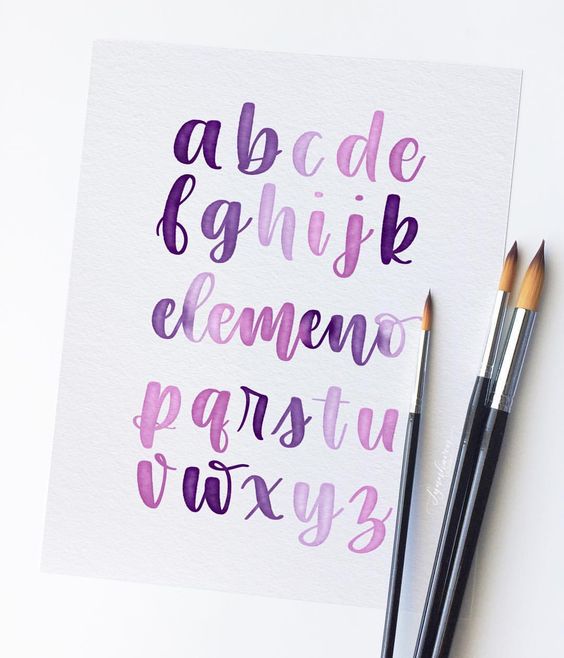 abcde
fghijk
elemeno
pqrstu
vwxyz